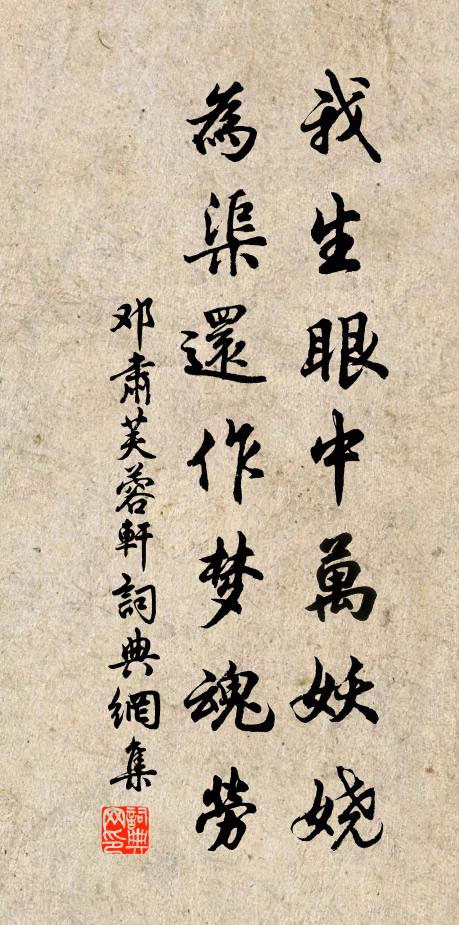 我生眼中萬妖嬈
為渠還作梦魂勞
邓肅芙蓉軒詞典網集
詞典网印